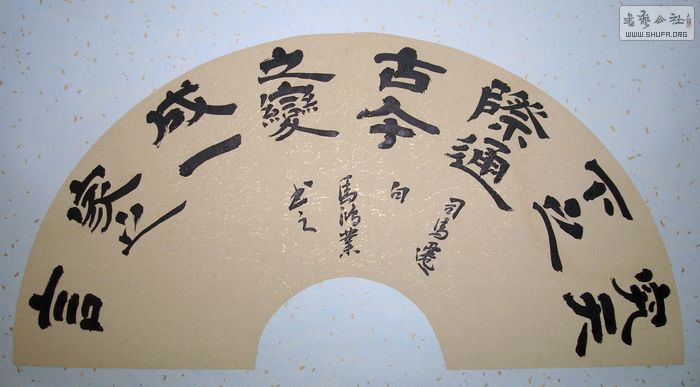 究天
人之
際通
古今
之變
成一
家之
言
司馬遷
句
馬鴻業
書之
書藝公社
WWW.SHUFA.ORG